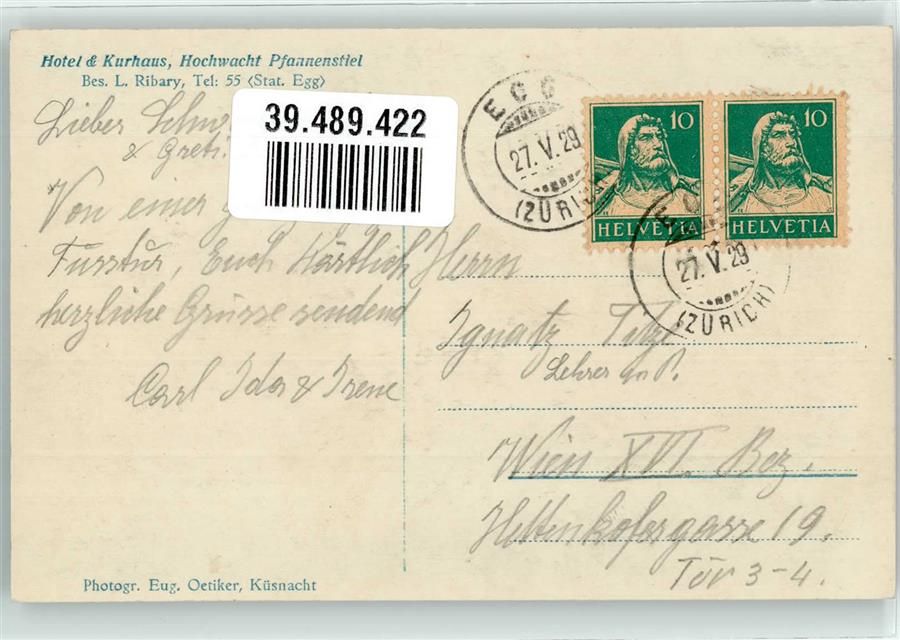 Hotel & Kurhaus, Hochwacht Pfannenstiel
Bes. L. Ribary, Tel: 55 (Stat. Egg)
39.489.422
Lieber
& Greti
Von einer
Fusstur, Euch
herzliche Grüsse sendend
Carl Ida & Irene
EGG
27.V.29
(ZÜRICH)
10
HELVETIA
10
HELVETIA
EGG
27.V.29
(ZÜRICH)
Herrn
Ignatz
Lehrer
Wien XVI. Bez.
Hettenkofergasse 19.
Tür 3-4.
Photogr. Eug. Oetiker, Küsnacht